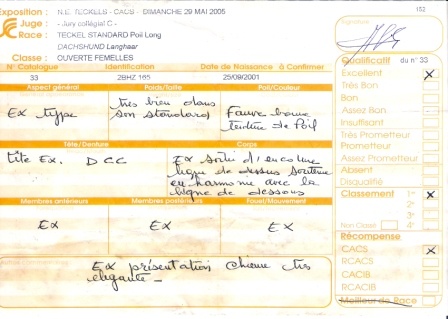 152
Exposition : N.E. TECKELS - CACS - DIMANCHE 29 MAI 2005
Juge : - Jury collégial C -
Race : TECKEL STANDARD Poil Long
DACHSHUND Langhaar
Classe : OUVERTE FEMELLES
Signature
N° Catalogue Identification Date de Naissance à Confirmer
33 2BHZ 165 25/09/2001
Qualificatif du n° 33
Excellent X
Très Bon
Bon
Assez Bon
Insuffisant
Très Prometteur
Prometteur
Assez Prometteur
Absent
Disqualifié
Classement 1er X
2e
3e
Non Classé 4e
Récompense
CACS X
RCACS
CACIB
RCACIB
Meilleur de Race
Aspect général Poids/Taille Poil/Couleur
Ex type
très bien dans
son standard
Fauve bonne
texture de poil
Tête/Denture Corps
tête Ex. DCC
Ex
ligne de dessus soutenue
en harmonie avec la
ligne de dessous
Membres antérieurs Membres postérieurs Fouet/Mouvement
Ex Ex Ex
Ex présentation chienne très
élégante -